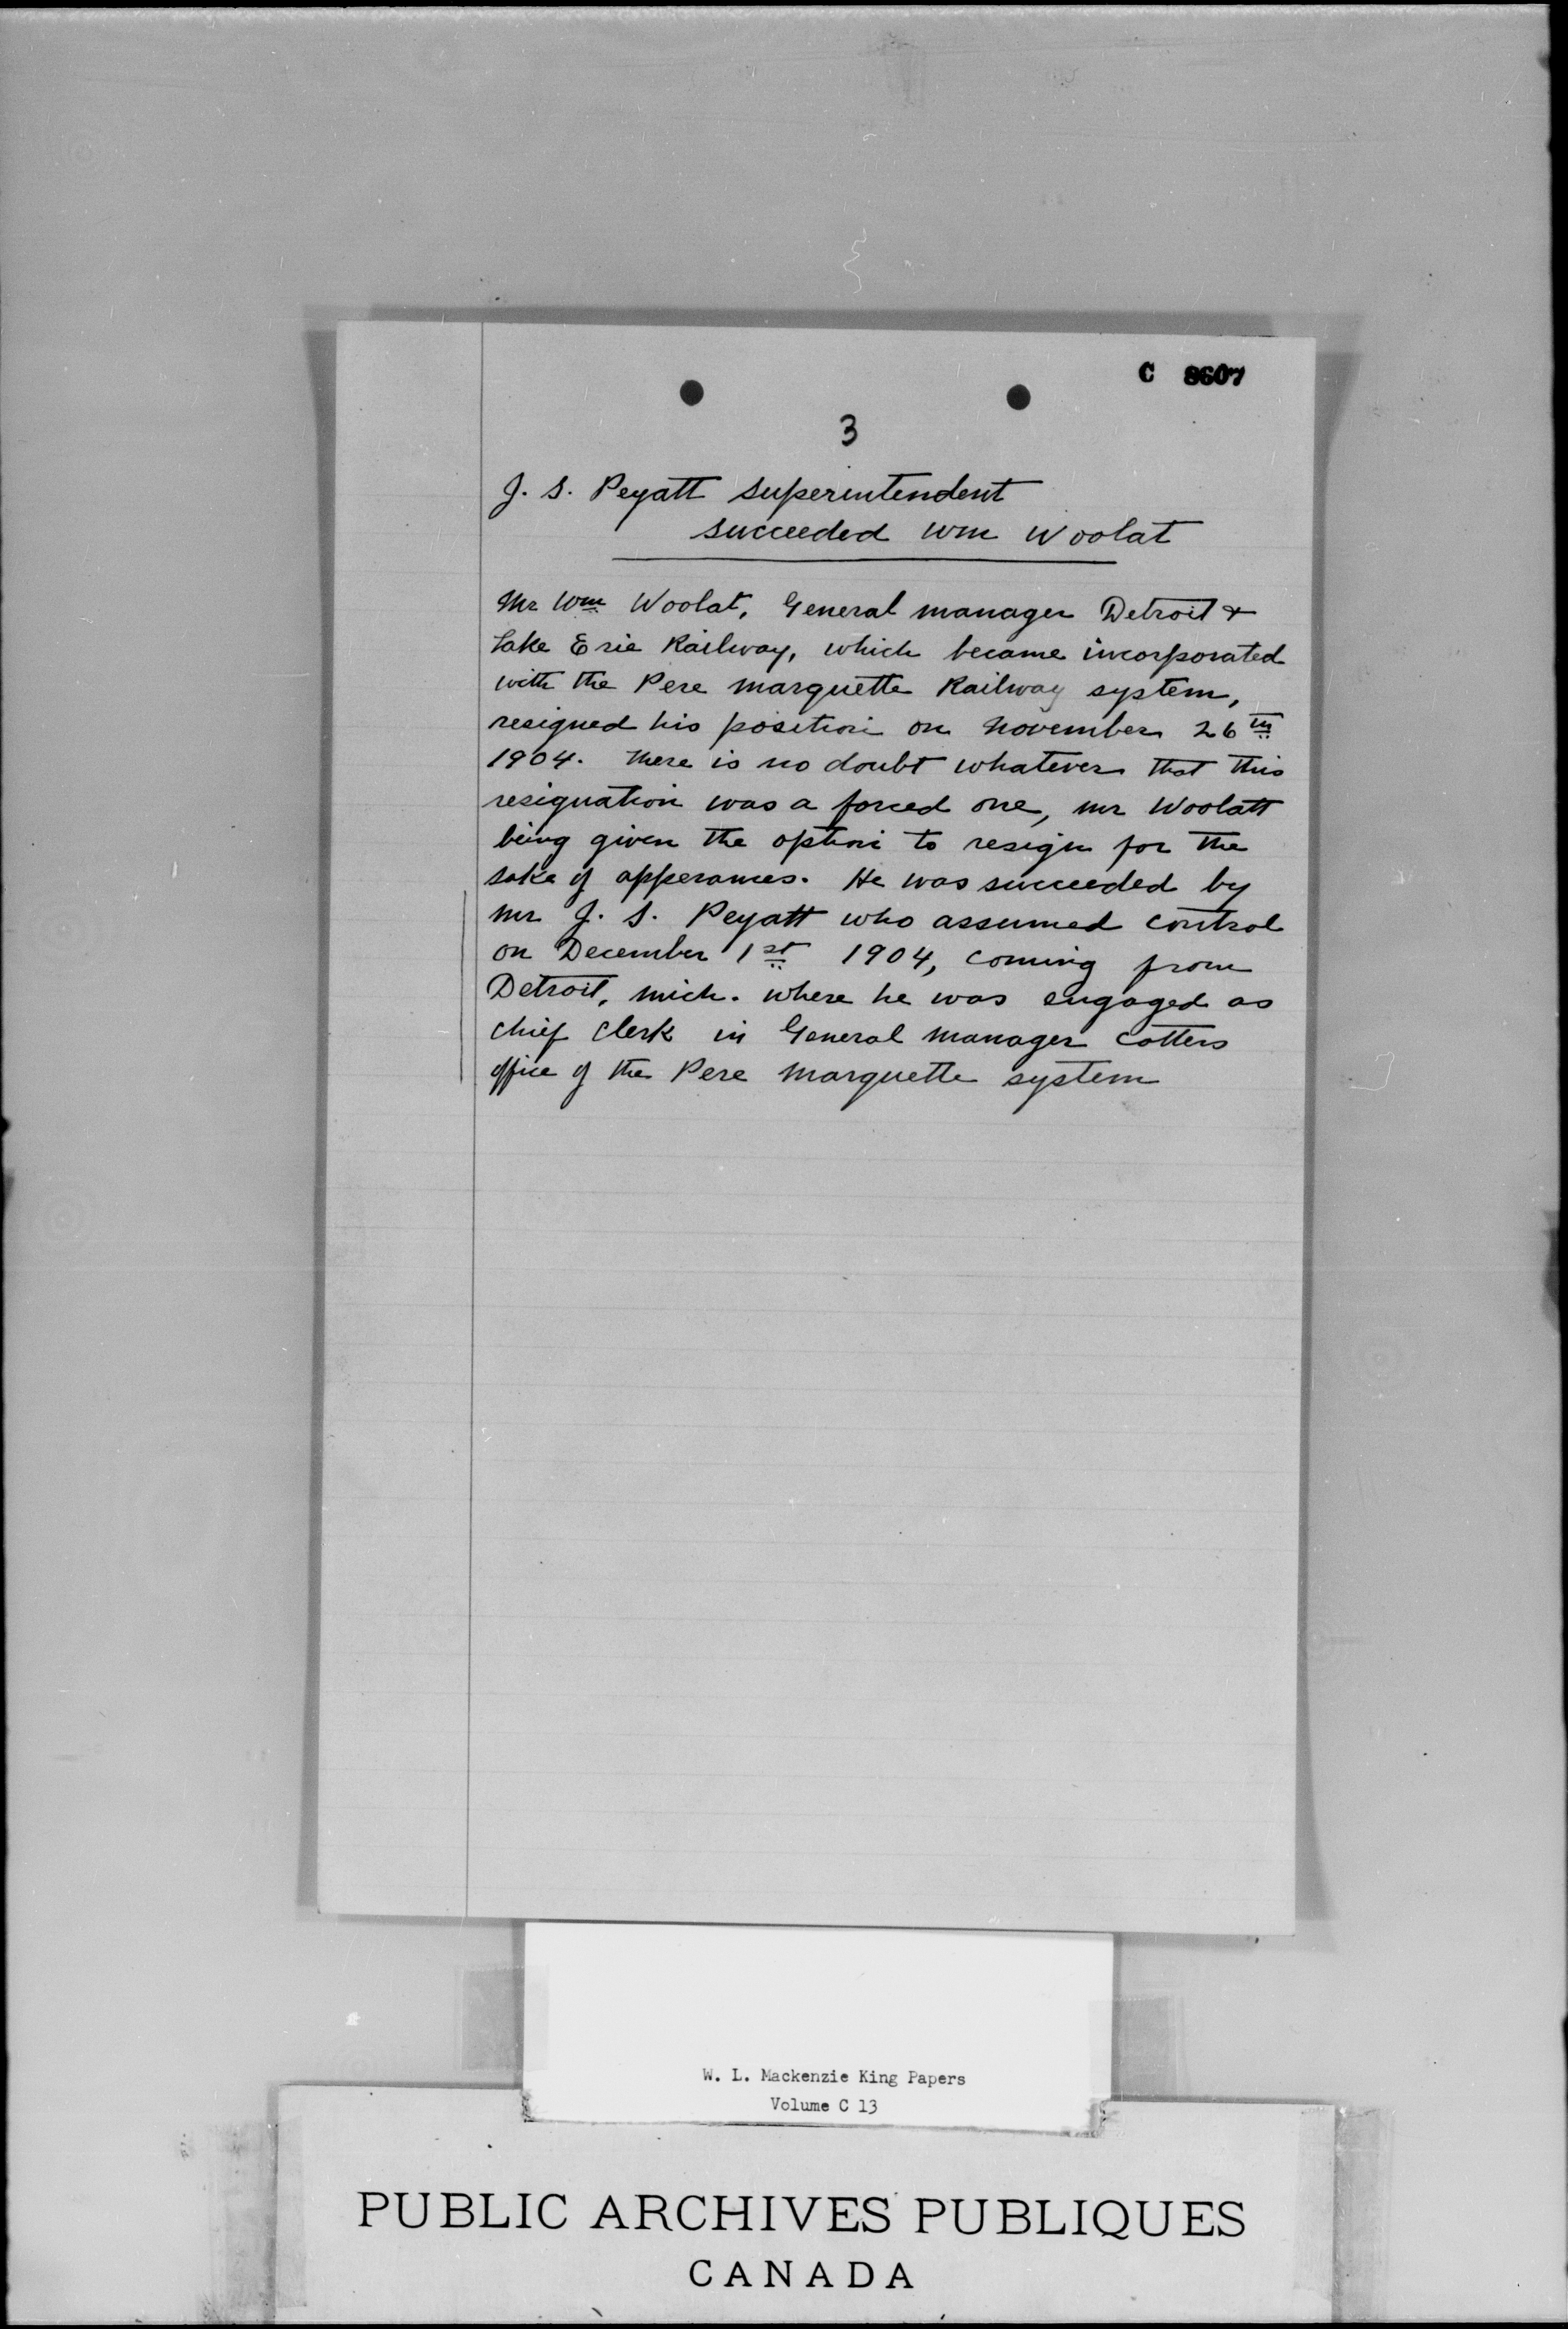 C 8607
3
J. S. Peyatt Superintendent
succeeded Wm Woolat
Mr Wm Woolat, General manager Detroit &
Lake Erie Railway, which became incorporated
with the Pere Marquette Railway system,
resigned his position on November 26th
1904. There is no doubt whatever that this
resignation was a forced one, Mr Woolatt
being given the option to resign for the
sake of apperances. He was succeeded by
Mr J. S. Peyatt who assumed control
on December 1st 1904, coming from
Detroit, Mich. where he was engaged as
chief clerk in General Manager Cotters
office of the Pere Marquette system
W. L. Mackenzie King Papers
Volume C 13
PUBLIC ARCHIVES PUBLIQUES
CANADA